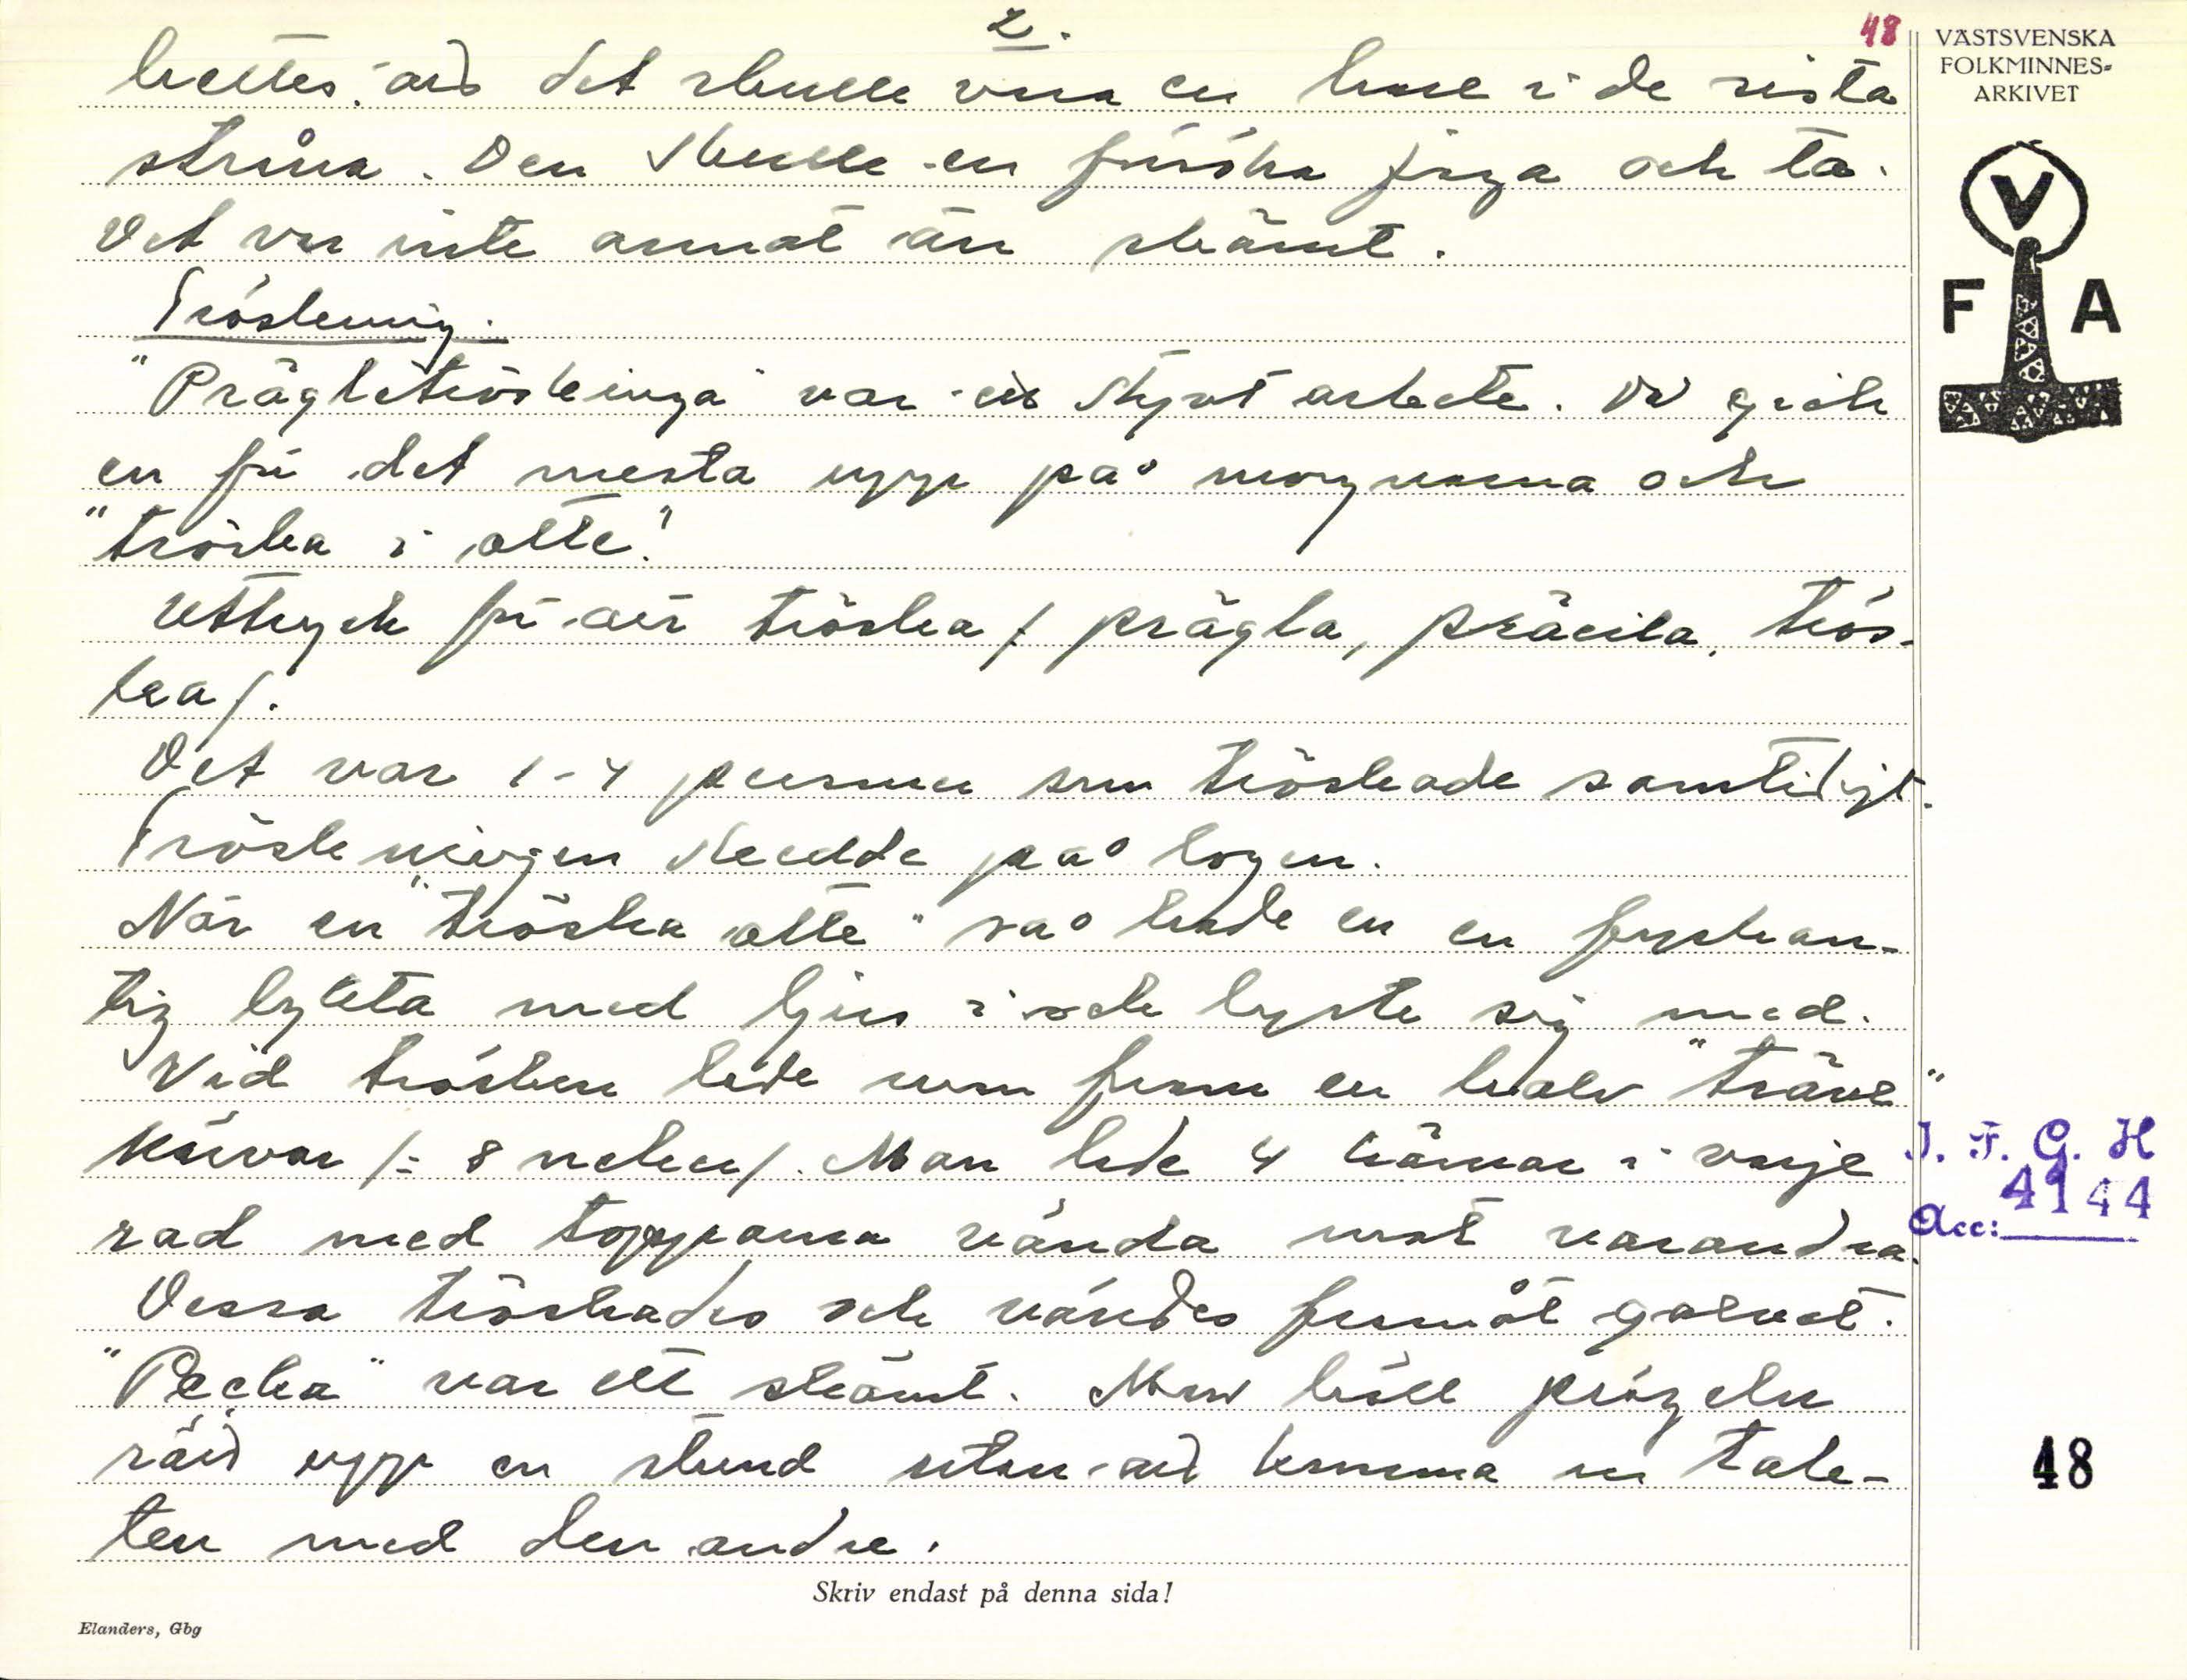 2.
48
hettes att det skulle vara en hare i de sista
stråna. Den skulle en försöka jaga och ta.
Det var inte annat än skämt.
Tröskning.
"Prägletröskinga" var ett styvt arbete. Då gick
en för det mesta upp på morgnarna och
"tröska i otte".
Uttryck för att tröska /prägla, präcila, trös-
ka/.
Det var 1-4 personer som tröskade samtidigt.
Tröskningen skedde på logen.
När en "tröska otte" så hade en en fyrkan-
tig lykta med ljus i och lyste sig med.
Vid trösken lade man fram en halv "trave"
kärvar /= 8 neker/. Man lade 4 kärvar i varje
rad med topparna vända mot varandra.
Dessa tröskades och vändes framåt golvet.
"Pecka" var ett skämt. Man höll prägeln
rätt upp en stund utan att komma ur tak-
ten med den andre.
Skriv endast på denna sida!
Elanders, Gbg
VÄSTSVENSKA
FOLKMINNES-
ARKIVET
V
F A
I. F. G. H
Acc: 4144
48